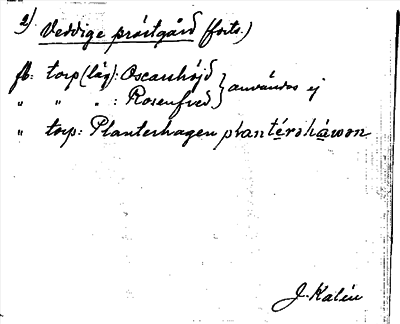 2) Veddige prästgård (forts.)
fb: torp (läg): Oscarshöjd } användas ej
" " " : Rosenfred
" torp: Planterhagen plantérshàwən
J. Kalén